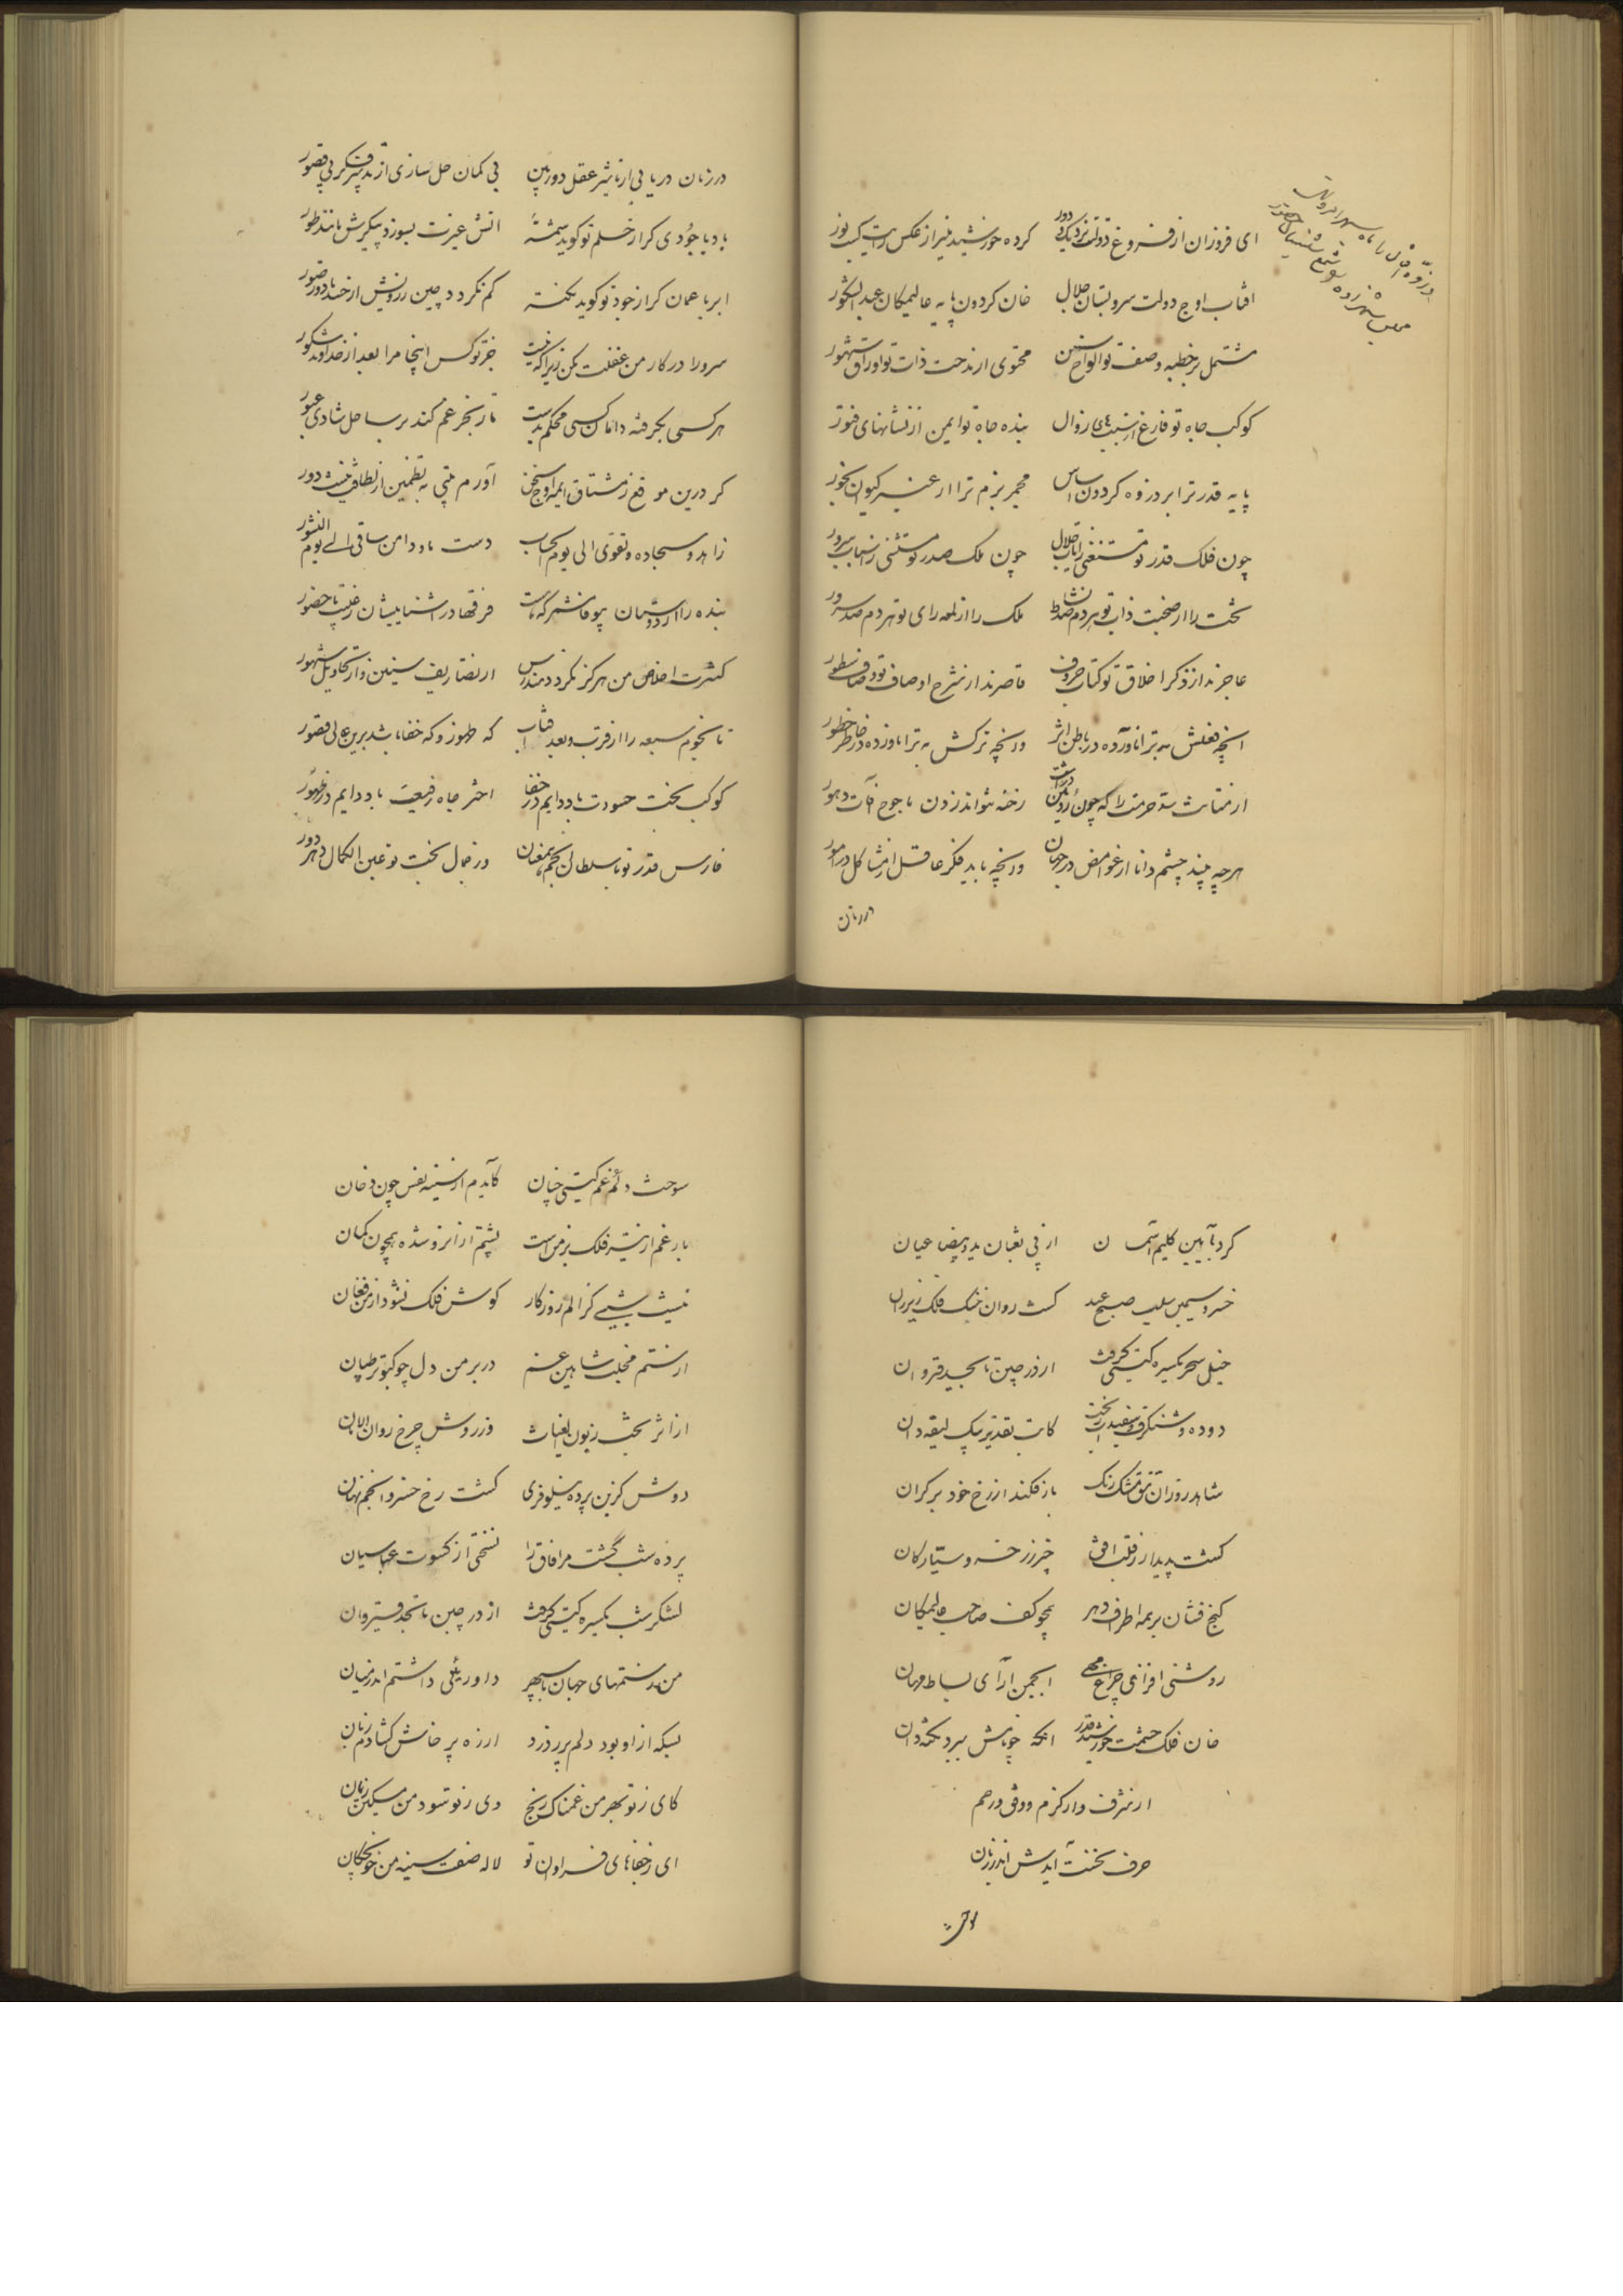 ای فروزان از فروغ دولتت نزدیک و دور کرده خورشید منیر از عکس رایت کسب نور
افتاب اوج دولت سرو بستان جلال خان کردون پایه عالیمکان عبدالشکور
مشتمل بر خطبه وصفت تو الواح سنین محتوی از مدحت ذات تو اوراق شهور
کوکب جاه تو فارغ از زوال بنده جاه تو ایمن از نشانهای فتور
پایه قدر ترا بر دروه کردون اساس مجمر بزم ترا از عنبر کیوان بخور
چون فلک قدر تو مستغنی ز اسباب جلال چون ملک صدر تو مستثنی ز اسباب سرور
تخت را از صحبت ذات تو هر دم صد نشاط ملک را از لمعه رای تو هر دم صد سرور
عاجزند از ذکر اخلاق تو کتاب حروف قاصرند از شرح اوصاف تو وصاف سطور
انچه فعلش به ترا ناورده در باطن اثر ورنچه ترکش به ترا ناورده در خاطر خطور
از متانت سد حزمت را که چون رویین رخنه نتواند زدن یاجوج افات دهور
هرچه بیند چشم دانا از غوامض در جهان ورنچه یابد فکر عاقل از مشاکل در امور
در زمان
در زمان دریابی از تاثیر عقل دوربین بی کمان حل سازی از تدبیر فکر بی قصور
باد با جودی کر از حلم تو کوید شمهٔ اتش غیرت بسوزد پیکرش مانند طور
ابر با عمان کر از جود تو کوید نکته کم نکردد چین رویش از حسد تا دور صور
سرورا در کار من غفلت مکن زیرا که نیست جز تو کس اینجا مرا بعد از خداوند شکور
هر کسی بکرفته دامان کسی محکم بدست تا ز بحر غم کند بر ساحل شادی عبور
کر درین موقع ز مشتاق ایمه اوج سخن آورم بیتی به تضمین از لطافت نیست دور
زاهد و سجاده و تقوی الی یوم الحساب دست ما و دامن ساقی الی یوم النشور
بنده را از دوستان بیوفا نشمر که هست فرقها در اشناییشان ز غیبت تا حضور
کثرت اخلاص من هرکز نکردد مندرس از تصاریف سنین و از تحاویل شهور
تا نجوم سبعه را از قرب و بعد افتاب که ظهور و که خفا باشد برین عالی قصور
کوکب بخت حسودت باد دایم در خفا اختر جاه رفیعت باد دایم در ظهور
فارس قدر تو با سلطان انجم همعنان ور جمال بخت تو عین الکمال دهر دور
کرد بآیین کلیم اسمان از پی ثعبان ید و بیضا عیان
خسرو سیمین سلب صبح عید کشت روان خنک فلک زیر ران
خیل سحر یکسره کیتی کرفت از در چین تا بحد قیروان
دوده و شنکرف و سفیداب ریخت کاتب تقدیر بیک لیقه دان
شاهد روز ان تتق مشک رنک باز فکند از رخ خود بر کران
کشت پدیدار ز قلب افق چتر زر خسرو سیارکان
کنج فشان بر همه اطراف دهر همچو کف صاحب عالیمکان
روشنی افزای چراغ انجمن آرای بساط مهان
خان فلک حشمت خورشید قدر انکه چو نامش ببرد نکته دان
از شرف و از کرم و وقار هم
حرف نخست آیدش اندر زبان
سوخت دلم غم کیتی چنان کایدم از سینه نفس چون دخان
بار غم از نه فلک بر من است پشتم از انرو شده همچون کمان
نیست شبی کز الم روزکار کوش فلک نشنود از من فغان
از ستم مخلب شاهین غم در بر من دل چو کبوتر طپان
از اثر بخت زبون الغیاث وز روش چرخ روان الامان
دوش کزین پرده نیلوفری کشت رخ خسرو انجم نهان
پرده شب کشت مر افاق را نسختی از کسوت عباسیان
لشکر شب یکسره کیتی کرفت از در چین تا بحد قیروان
من ز ستمهای جهان با سپهر داوریئی داشتم اندر میان
بسکه از او بود دلم پر ز درد از ره پرخاش کشادم زبان
کای ز تو بهر من غمناک رنج وی ز تو سود من مسکین زیان
ای ز جفاهای فراوان تو لاله صفت سینه من خونچکان